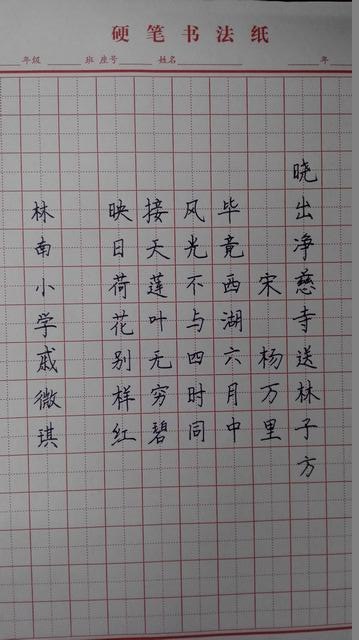 硬笔书法纸
年级 班 座号 姓名 年
晓出净慈寺送林子方
宋 杨万里
毕竟西湖六月中
风光不与四时同
接天莲叶无穷碧
映日荷花别样红
林南小学戚微琪